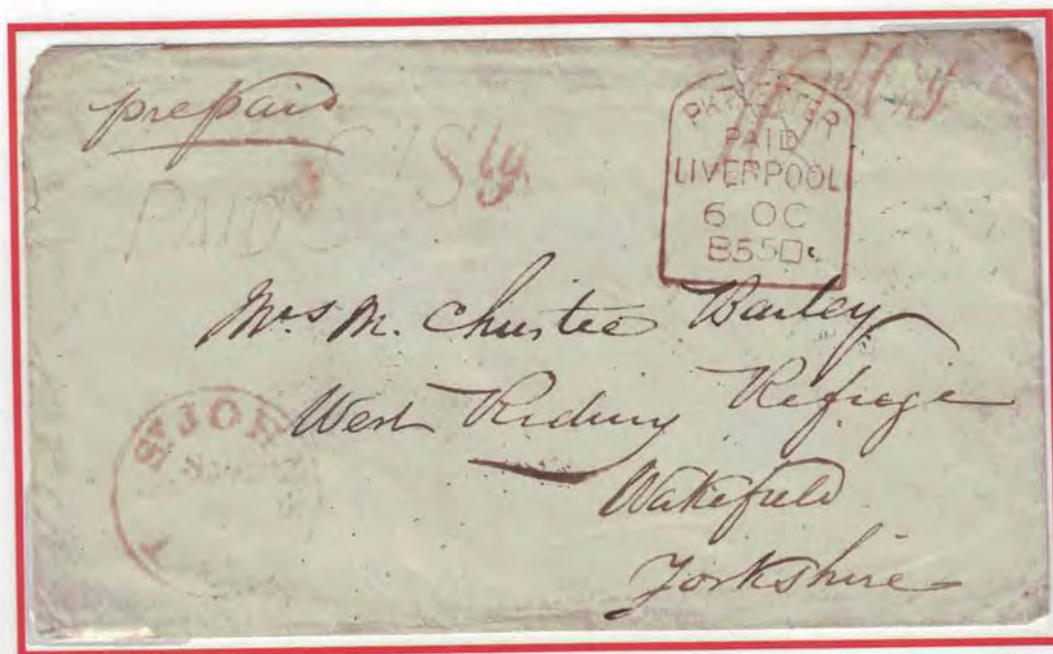 prepaid
PAID
PKT LETTER
PAID
LIVERPOOL
6 OC
B55D
Mrs M. Christie Barley
West Riding Refuge
Wakefield
Yorkshire
ST JOH